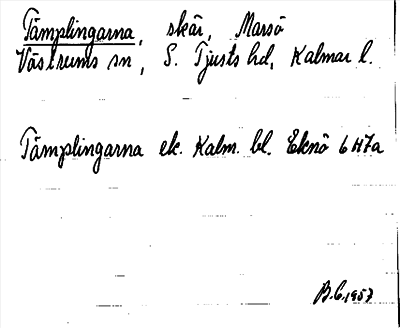 Tämplingarna, skär, Marsö
Västrums sn, S. Tjusts hd, Kalmar l.
Tämplingarna ek. Kalm. bl. Eknö 6 H7a
B.C. 1957